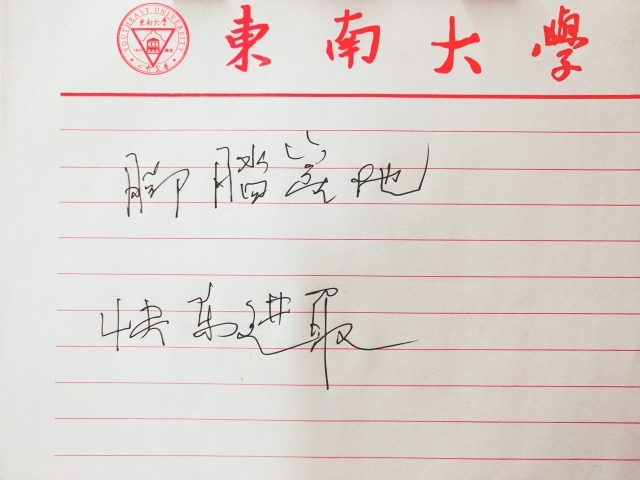 SOUTHEAST UNIVERSITY
東南大學
東南大學
脚踏实地
快马进取